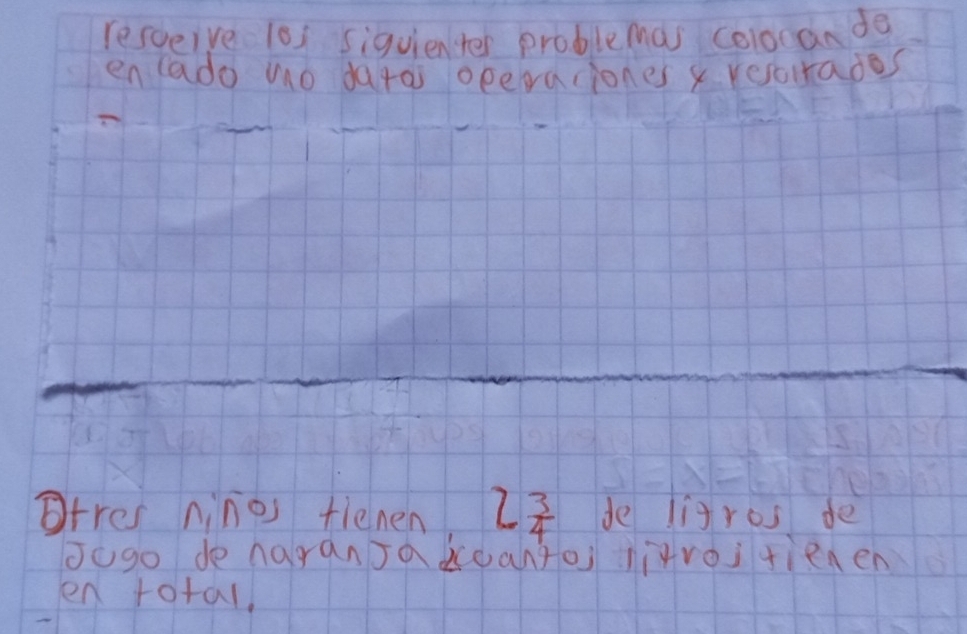 resveive los siguientes problemas colocando
en cado uno datos operaciones y resultados
-
①tres niños tienen 2 3/4 de litros de
Jugo de naranJa cuantos litros tienen
en total.
-